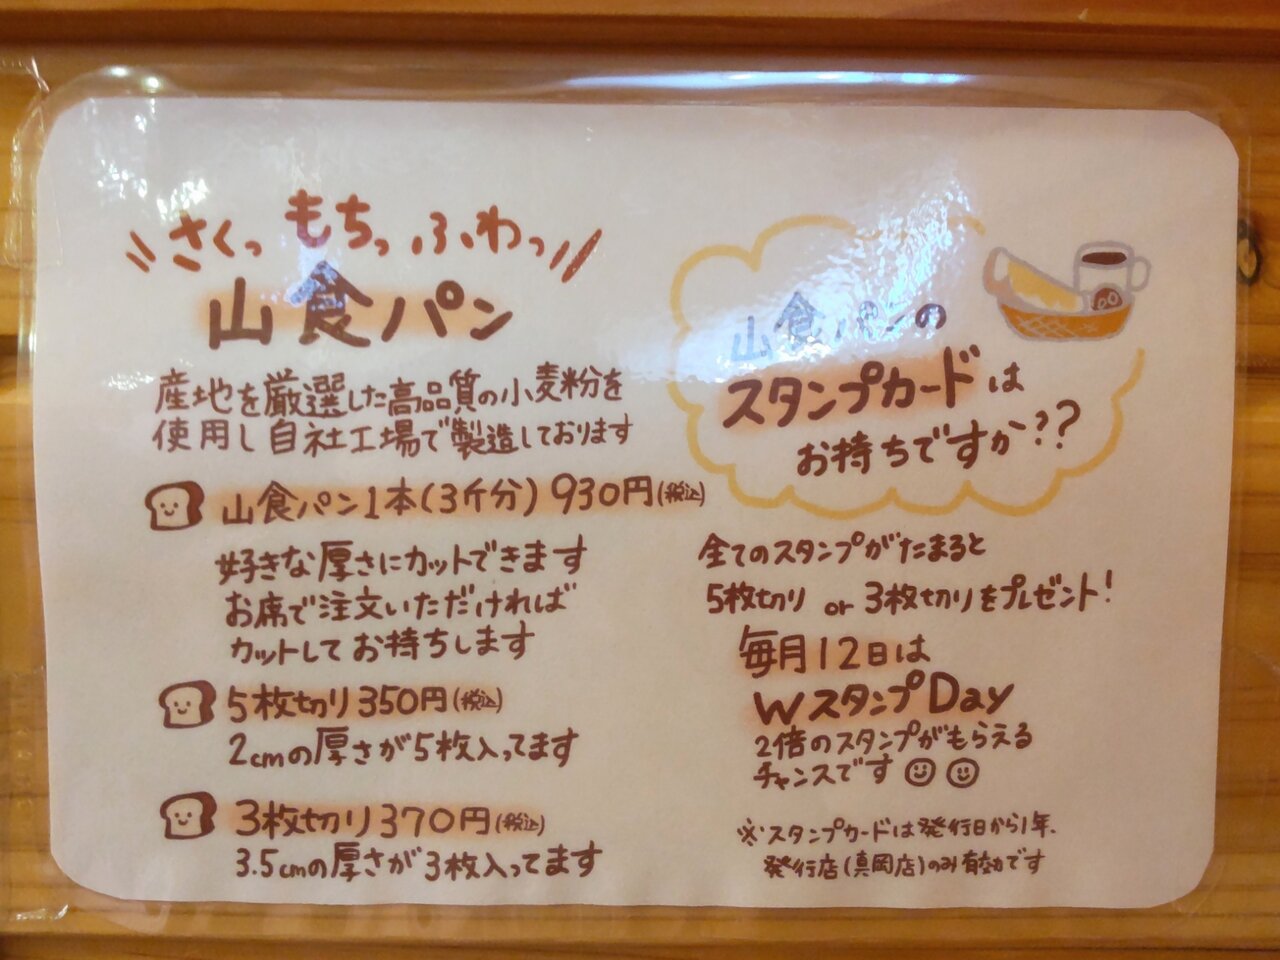 さくっ もちっ ふわっ
山食パン
産地を厳選した高品質の小麦粉を
使用し自社工場で製造しております
山食パン1本(3斤分) 930円(税込)
好きな厚さにカットできます
お席で注文いただければ
カットしてお持ちします
5枚切り 350円(税込)
2cmの厚さが5枚入ってます
3枚切り 370円(税込)
3.5cmの厚さが3枚入ってます
山食パンの
スタンプカードは
お持ちですか??
全てのスタンプがたまると
5枚切り or 3枚切りをプレゼント!
毎月12日は
WスタンプDay
2倍のスタンプがもらえる
チャンスです
※スタンプカードは発行日から1年、
発行店(真岡店)のみ有効です